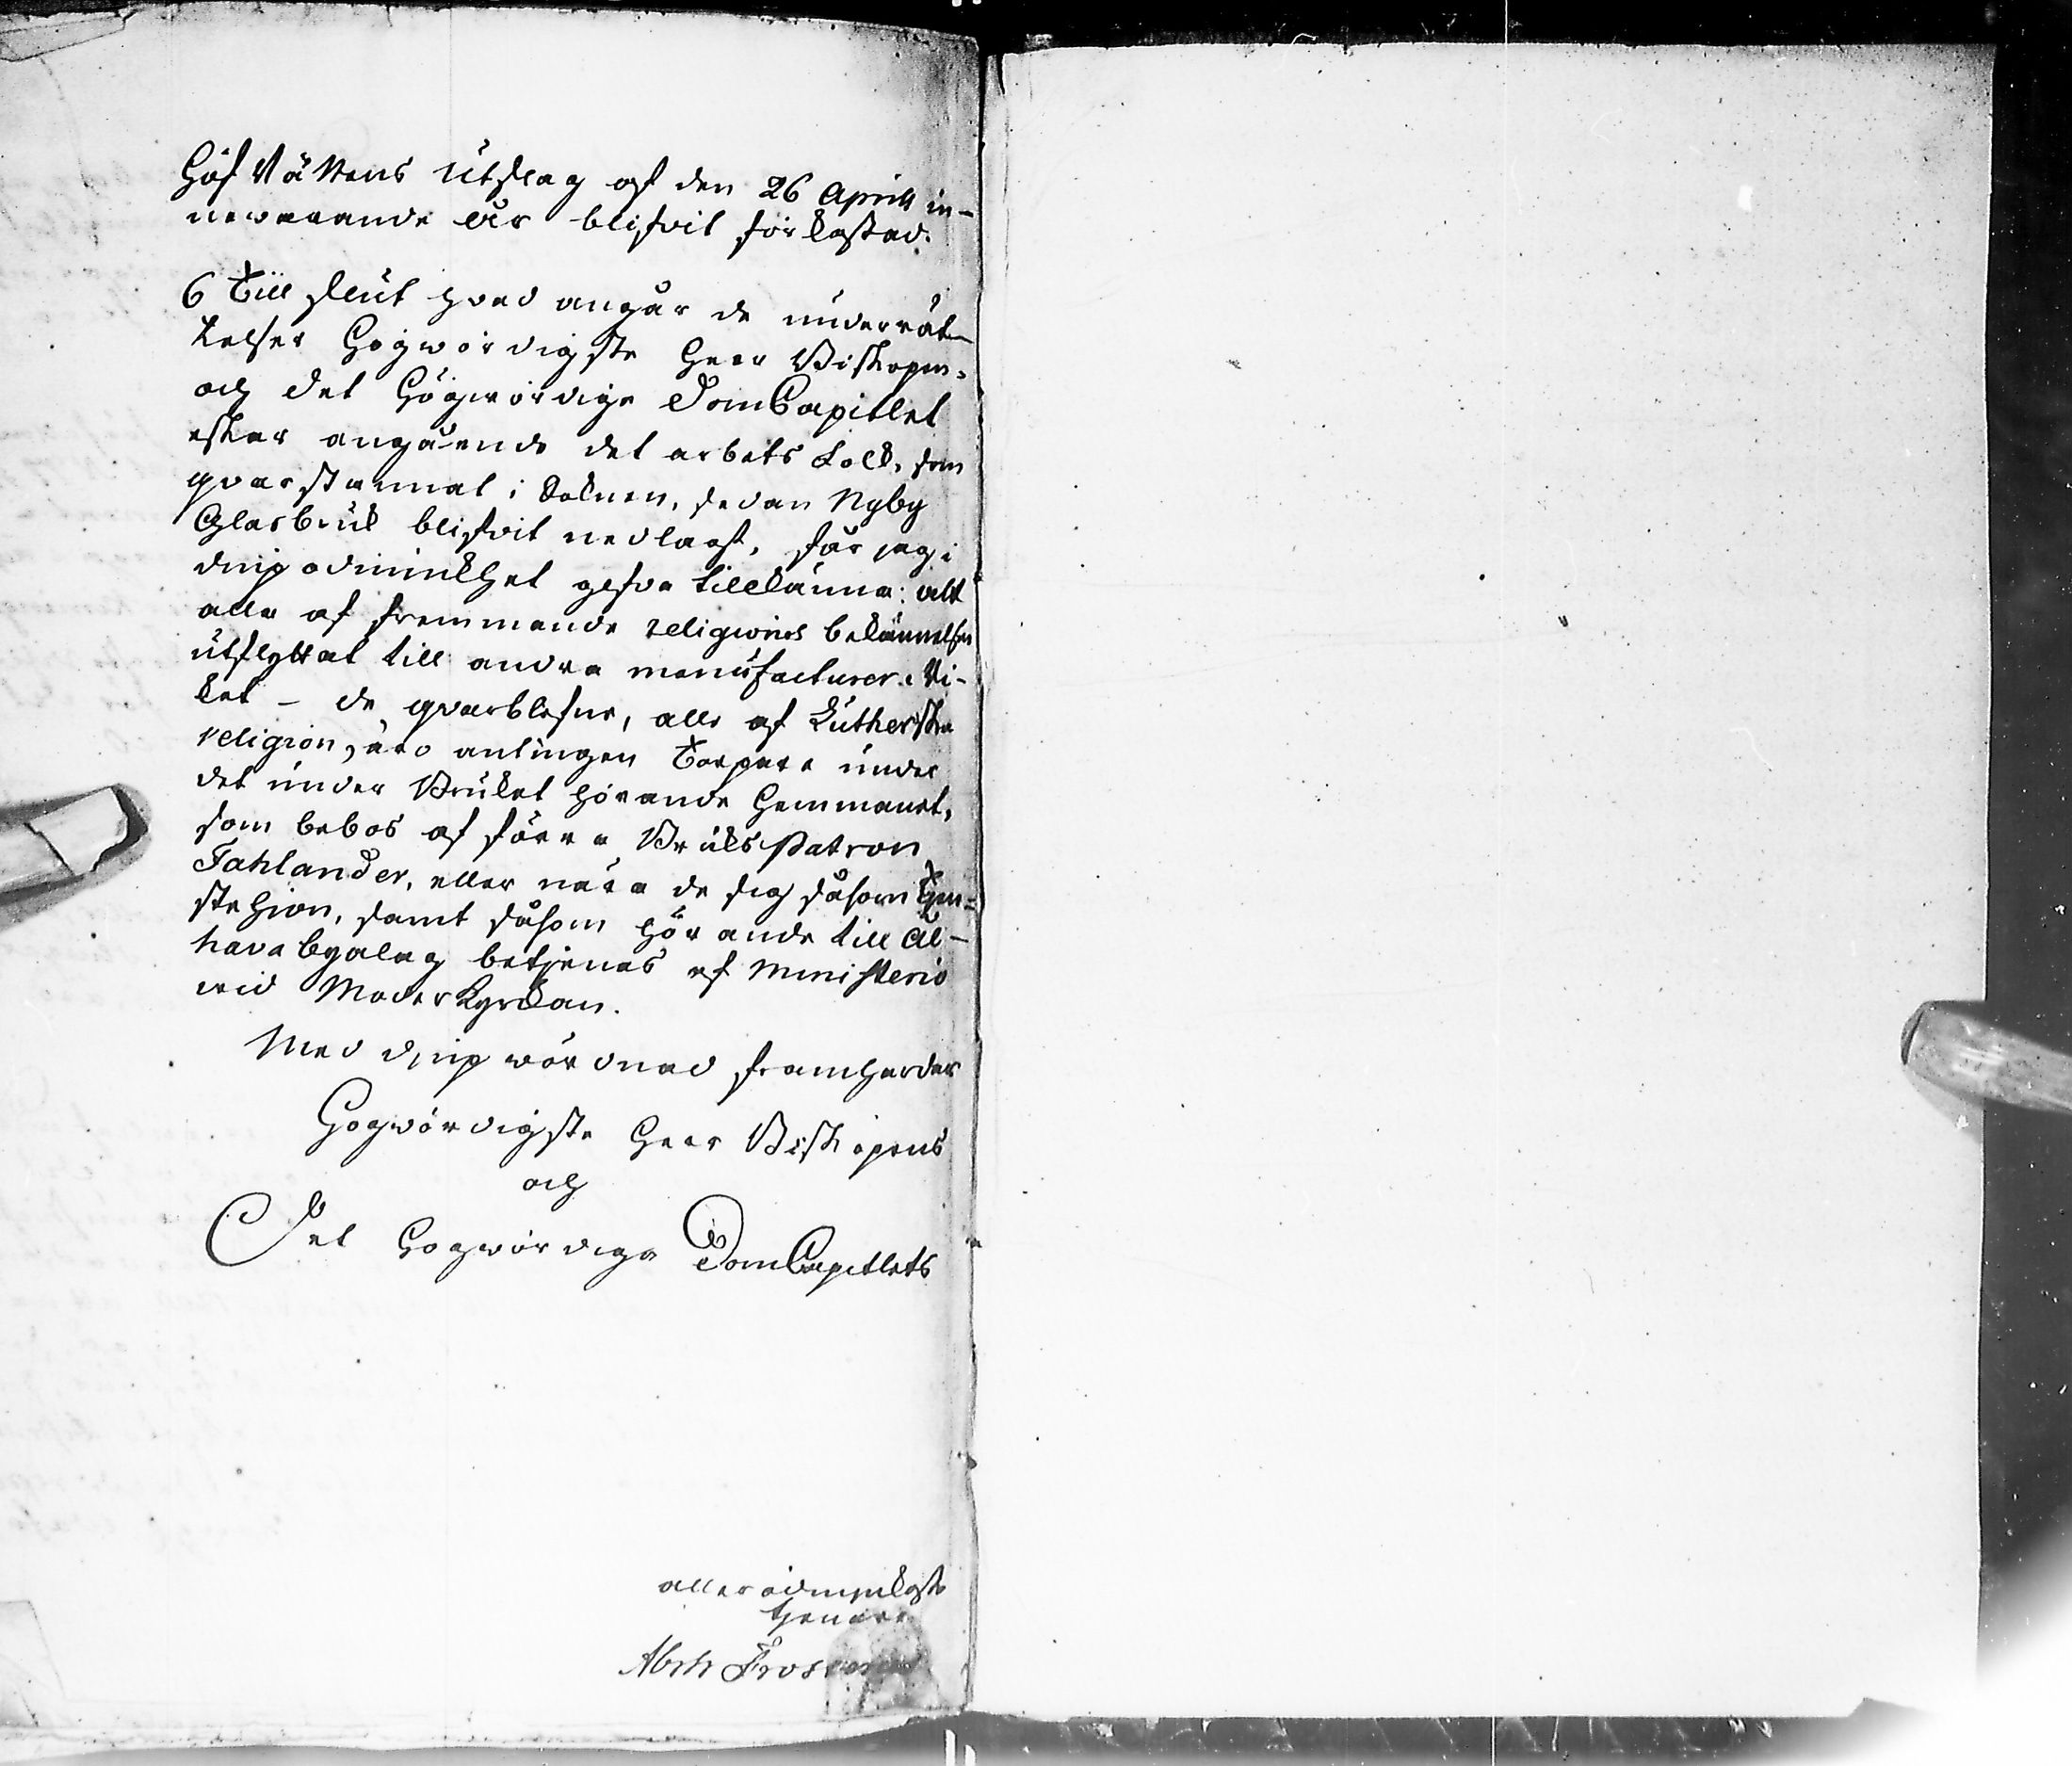 Hof Rättens Utslag af den 26 Aprili in-
newarande år blifvit förkastad.
6 Till slut hvad angår de underrät-
telser Högwördigste Herr Biskopen
och det Högwördiga DomCapitlet
äskar angående det arbets Folk, som
qvarstannat i Soknen, sedan Nyby
Glasbruk blifvit nedlagt, får jag i
diup ödmiukhet gifva tillkänna: att
alla af fremmande religions bekännelsen
utflyttat till andra manufacturer i Ri-
ket - de qvarblefne, alle af Lutherska
religion, äro antingen Torpare under
det under Bruket hörande Hemmanet,
som bebos af förra Bruks Patron
Fahlander, eller nära de sig såsom Tjen-
stehion, samt såsom hörande till Al-
hava byalag betjenas af Ministerio
wid Moder Kyrkan.
Med diup wördnad framhärdar
Högwördigste Herr Biskopens
och
Det Högwördiga DomCapitlets
allerödmjukaste
tjenare
Abrh Frosterus